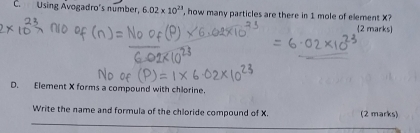 C. Using Avogadro's number, 6.02 x 10²³, how many particles are there in 1 mole of element X?
(2 marks)
2 x 10²³ x no of (n) = No of (P) x 6.02x10²³
6.02x10²³
= 6.02x10²³
No of (P) = 1 x 6.02x10²³
D. Element X forms a compound with chlorine.
Write the name and formula of the chloride compound of X. (2 marks)